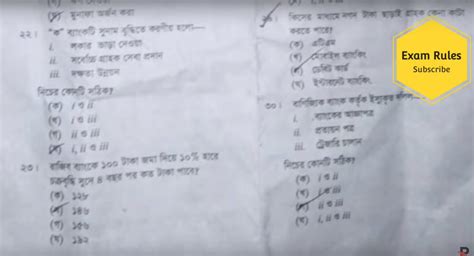 (খ) মুনাফা অর্জন করা
২২। "ক" ব্যাংকটি সুনাম বৃদ্ধিতে করণীয় হলো—
i. লকার ভাড়া দেওয়া
ii. সর্বোচ্চ গ্রাহক সেবা প্রদান
iii. দক্ষতা উন্নয়ন
নিচের কোনটি সঠিক?
(ক) i ও ii
(খ) i ও iii
(গ) ii ও iii
i, ii ও iii
২৩। রাজিব ব্যাংকে ১০০ টাকা জমা দিয়ে ১০% হারে
চক্রবৃদ্ধি সুদে ৪ বছর পর কত টাকা পাবে?
(ক) ১২৮
১৪৬
(গ) ১৫৬
(ঘ) ১৯২
কিসের মাধ্যমে নগদ টাকা ছাড়াই গ্রাহক কেনা কাটা
করতে পারে?
(ক) এটিএম
(খ) মোবাইল ব্যাংকিং
ডেবিট কার্ড
(ঘ) ইন্টারনেট ব্যাংকিং
৩০। বাণিজ্যিক ব্যাংক কর্তৃক ইস্যুকৃত দলিল—
i. ব্যাংকের আজ্ঞাপত্র
ii. প্রত্যয়ন পত্র
iii. ট্রেজারি চালান
নিচের কোনটি সঠিক?
(ক) i ও ii
i ও iii
(গ) ii ও iii
(ঘ) i, ii ও iii
Exam Rules
Subscribe